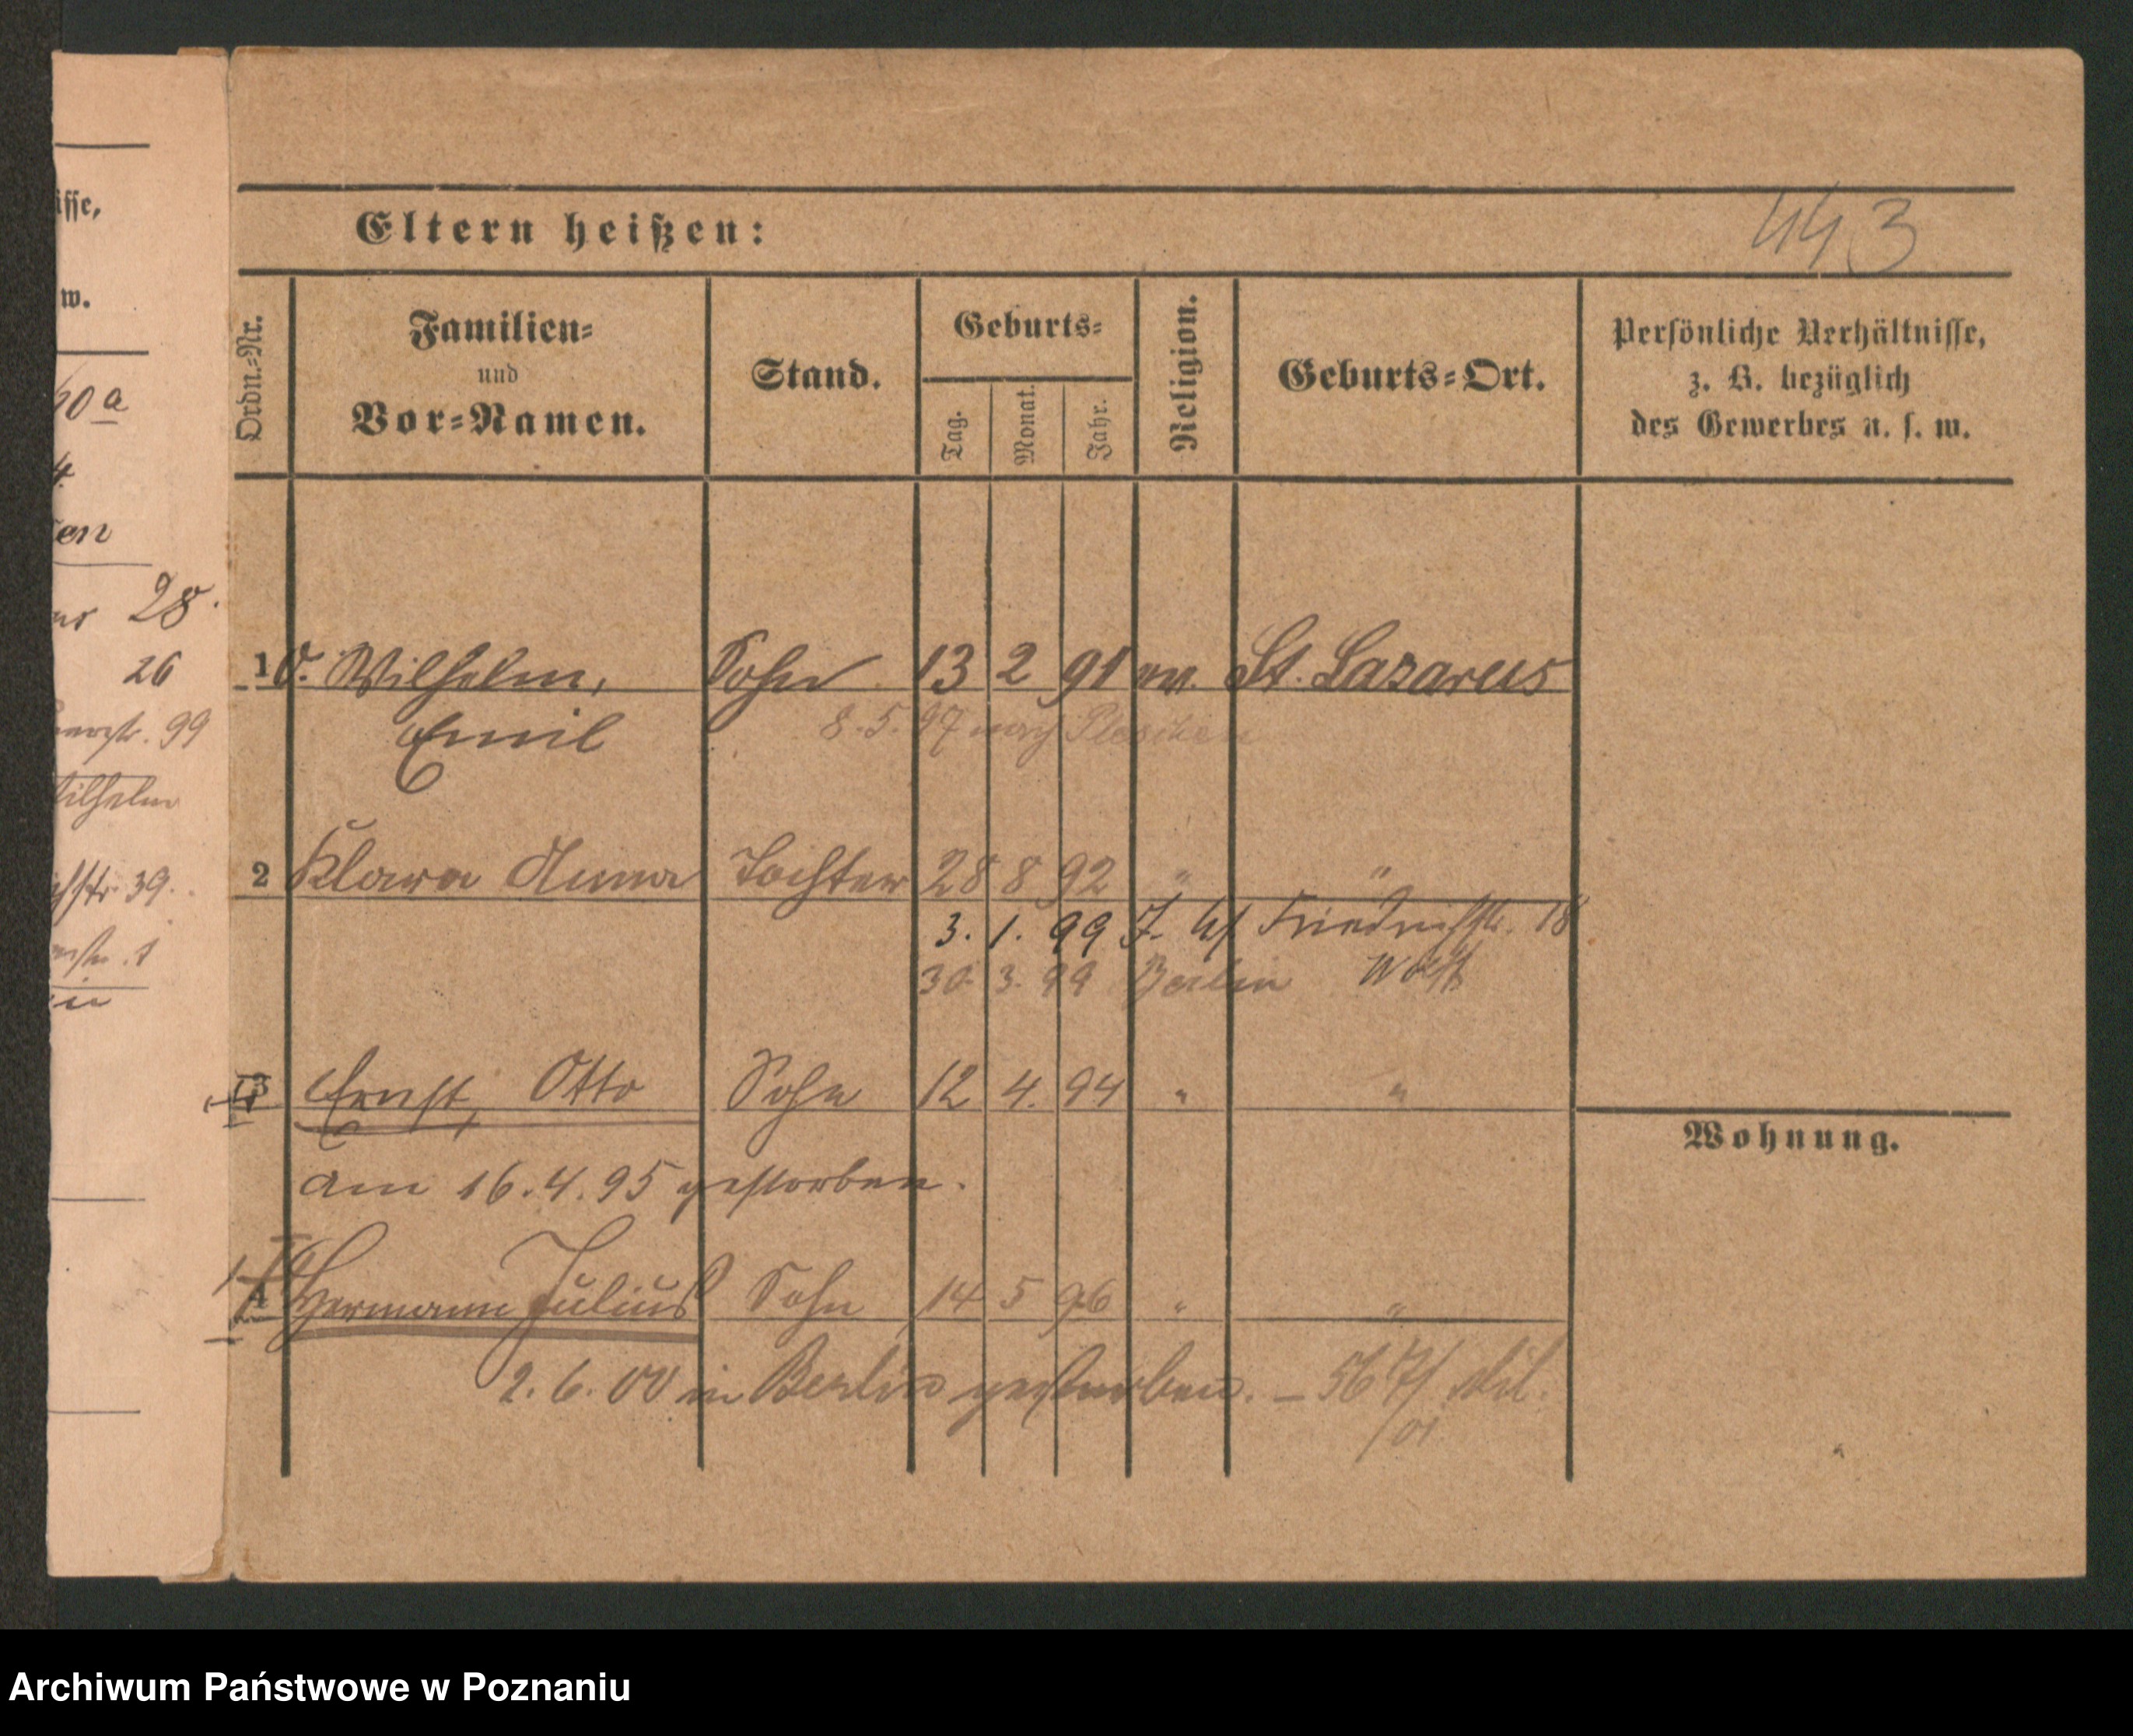 Eltern heißen:
443
Ordn.-Nr.
Familien-
und
Vor-Namen.
Stand.
Geburts-
Tag.
Monat.
Jahr.
Religion.
Geburts-Ort.
Persönliche Verhältnisse,
z. B. bezüglich
des Gewerbes u. s. w.
isse,
w.
a
en
28.
26
99
ilhelm
39.
1 Wilhelm, Sohn 13 2 91 ev. St. Lazarus
Emil 8. 5. 97 nach Pleschen
2 Klara Anna Tochter 28 8 92 " "
3. 1. 99 Friedrichstr. 18
30. 3. 99 Berlin
3 Ernst, Otto Sohn 12 4. 94 " "
am 16. 4. 95 gestorben.
Wohnung.
4 Hermann Julius Sohn 14 5 96 " "
2. 6. 00 in Berlin gestorben. –
01
Archiwum Państwowe w Poznaniu